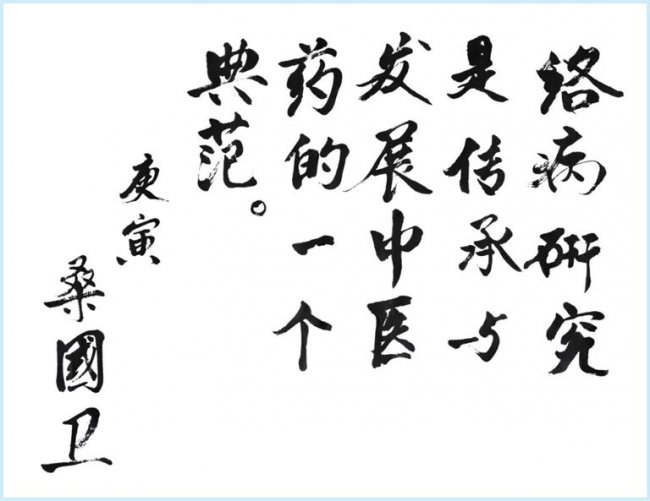 络病研究
是传承与
发展中医
药的一个
典范。
庚寅
桑國卫